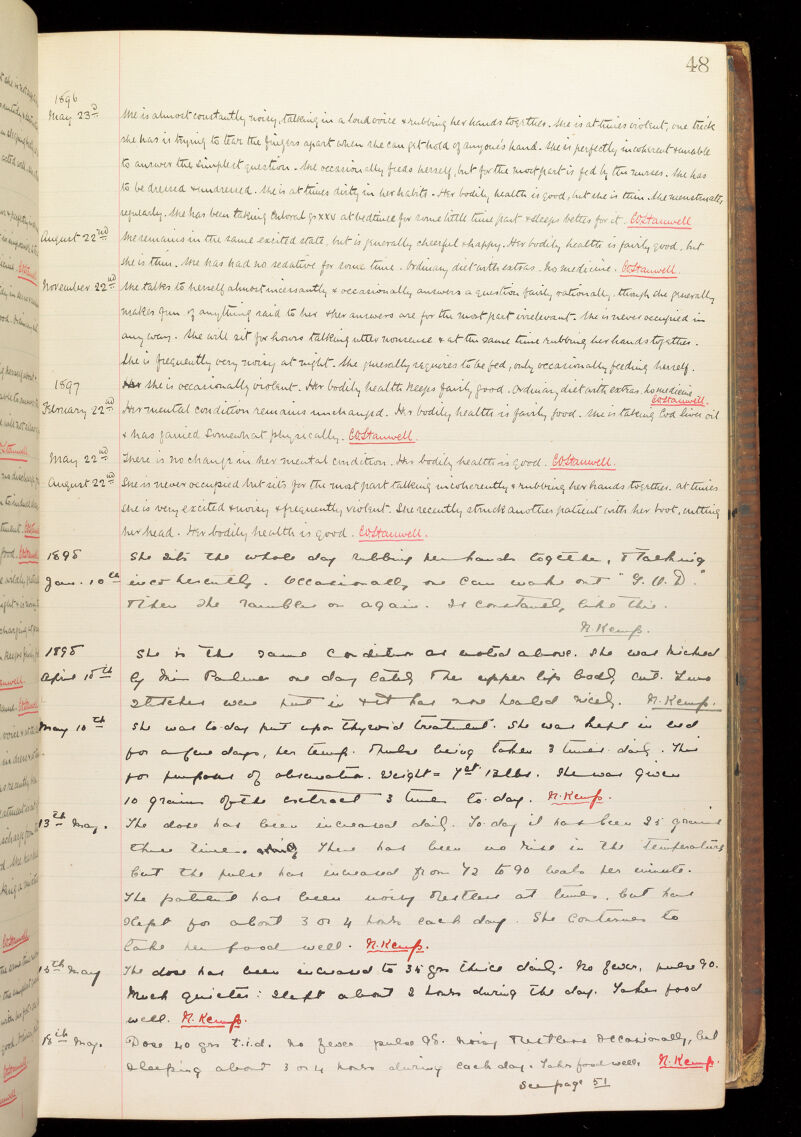 48
1896
May 23rd She is almost constantly noisy, talking in a loud voice & rubbing her hands together. She is at times violent, one trick
she has is trying to tear the fingers apart when she can get hold of anyone's hand. She is perfectly incoherent & unable
to answer the simplest question. She occasionally feeds herself, but for the most part is fed by the nurses. She has
to be dressed & undressed. She is at times dirty in her habits. Her bodily health is good, but she is thin. She menstruates
regularly. She has been taking Chloral grs xxv at bedtime for some little time past & sleeps better for it. COStanwell
August 22nd She remains in the same excited state, but is generally cheerful & happy. Her bodily health is fairly good, but
she is thin. She has had no sedative for some time. Ordinary diet with extras. No medicine. COStanwell.
November 22nd She talks to herself almost incessantly & occasionally answers a question fairly rationally, though she generally
makes fun of anything said to her & her answers are for the most part irrelevant. She is never occupied in
any way. She will sit for hours talking utter nonsense & at the same time rubbing her hands together.
She is frequently very noisy at night. She generally requires to be fed, only occasionally feeding herself.
She is occasionally violent. Her bodily health keeps fairly good. Ordinary diet with extras. No medicine
COStanwell.
1897
February 22nd Her mental condition remains unchanged. Her bodily health is fairly good. She is taking Cod liver oil
& has gained somewhat physically. COStanwell.
May 22nd There is no change in her mental condition. Her bodily health is good. COStanwell.
August 22nd She is never occupied but sits for the most part talking incoherently & rubbing her hands together. At times
she is very excited & noisy & frequently violent. She recently struck another patient with her boot, cutting
her head. Her bodily health is good. COStanwell.
1898 She sits the whole day rubbing her hands together, & talking
Jan. 10th incoherently. Occasionally one can make out "G.O.D."
& then she rambles on again. Is constantly like this.
N. Kemp.
1898 She is in the same condition as noted above. She was kicked
April 10th by Miss Palmer one day lately & the upper lip badly cut. Two
stitches were put in & it has now healed nicely. N. Kemp.
May 10th She was to-day put upon thyroid treatment. She was kept in bed
for a few days, her temp. & pulse being taken 3 times daily. This
for purposes of observation. Weight = 7st 12lbs. She was given
10 grains of the extract 3 times to-day. N. Kemp.
13th May. The dose has been increased daily. To-day it has been 25 grains
three times. There has been no rise in the temperature
but the pulse has increased from 72 to 90 beats per minute.
The patient has been noisy & restless at times, but has
slept for about 3 or 4 hours each day. She continues to
take her food well. N. Kemp.
15th May The dose has been increased to 35 grs thrice daily. No fever, pulse 90.
Much quieter: slept about 2 hours during the day. Takes food
well. N. Kemp.
18th May. Dose 40 grs t.i.d. No fever pulse 98. Noisy & restless occasionally, but
sleeping about 3 or 4 hours during each day. Takes food well. N. Kemp.
See page 51